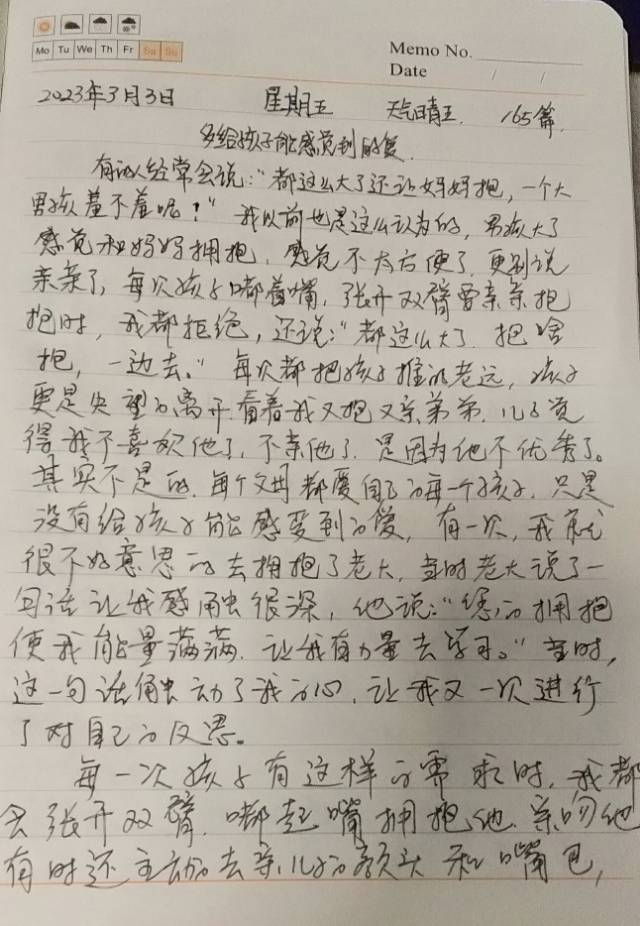 Mo Tu We Th Fr Sa Su
Memo No.
Date / /
2023年3月3日 星期五 天气晴王 165篇
多给孩子能感觉到的爱
有的人经常会说:“都这么大了还让妈妈抱,一个大
男孩羞不羞呢?”我以前也是这么认为的,男孩大了
感觉和妈妈拥抱,感觉不太方便了,更别说
亲亲了,每次孩子嘟着嘴,张开双臂要亲亲抱
抱时,我都拒绝,还说:“都这么大了,抱啥
抱,一边去。”每次都把孩子推的老远,孩子
更是失望的离开.看着我又抱又亲弟弟.儿子觉
得我不喜欢他了,不亲他了.是因为他不优秀了。
其实不是的.每个父母都爱自己的每一个孩子.只是
没有给孩子能感受到的爱,有一次,我就
很不好意思的去拥抱了老大,当时老大说了一
句话让我感触很深,他说:“您的拥抱
使我能量满满.让我有力量去学习。”当时,
这一句话触动了我的心,让我又一次进行
了对自己的反思。
每一次孩子有这样的需求时,我都
会张开双臂.嘟起嘴拥抱他、亲吻他
有时还主动的去亲儿子的额头和嘴巴,